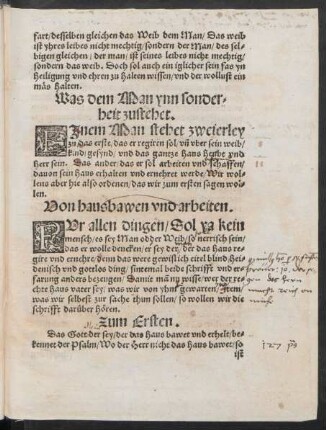 fart/desselben gleichen das Weib dem Man/ Das weib
ist yhres leibes nicht mechtig/ sondern der Man/ des sel-
bigen gleichen/ der man/ ist seines leibes nicht mechtig/
sondern das weib. Doch sol auch ein iglicher sein fas yn
heiligung vnd ehren zu halten wissen/ vnd der wollust ein
mas halten.
Was dem Man ynn sonder-
heit zustehet.
EJnem Man stehet zweierley
zu/ das erste, das er regiren sol/ vber sein weib/
kind/ gesynd/ vnd das gantze Haus
Herr sein. Das ander das er sol arbeiten vnd schaffen/
dauon sein Haus erhalten vnd ernehret werde/ Wir wol-
lens aber hie also ordenen/ das wir zum ersten sagen wol-
len.
Von hausbawen vnd arbeiten.
FVr allen dingen/ Sol ya kein
mensch/ es sey Man odder Weib/ so nerrisch sein/
das er wolle dencken/ er sey der/ der das Haus re-
gire vnd ernehre/ denn das were gewislich eitel blind Hei-
denisch vnd gotlos ding/ sintemal beide schrifft vnd er-
farung anders bezeugen/ Damit man wisse/ wer der re-
chte Haus vater sey/ was wir von yhm gewarten/ Jtem/
was wir selbst zur sache thun sollen/ so wollen wir die
schrifft darüber hören.
Zum Ersten.
Das Gott der sey/ der das haus bawet vnd erhelt/ be-
kennet der Psalm/ Wo der Herr nicht das haus bawet/ so
ist
127 ps